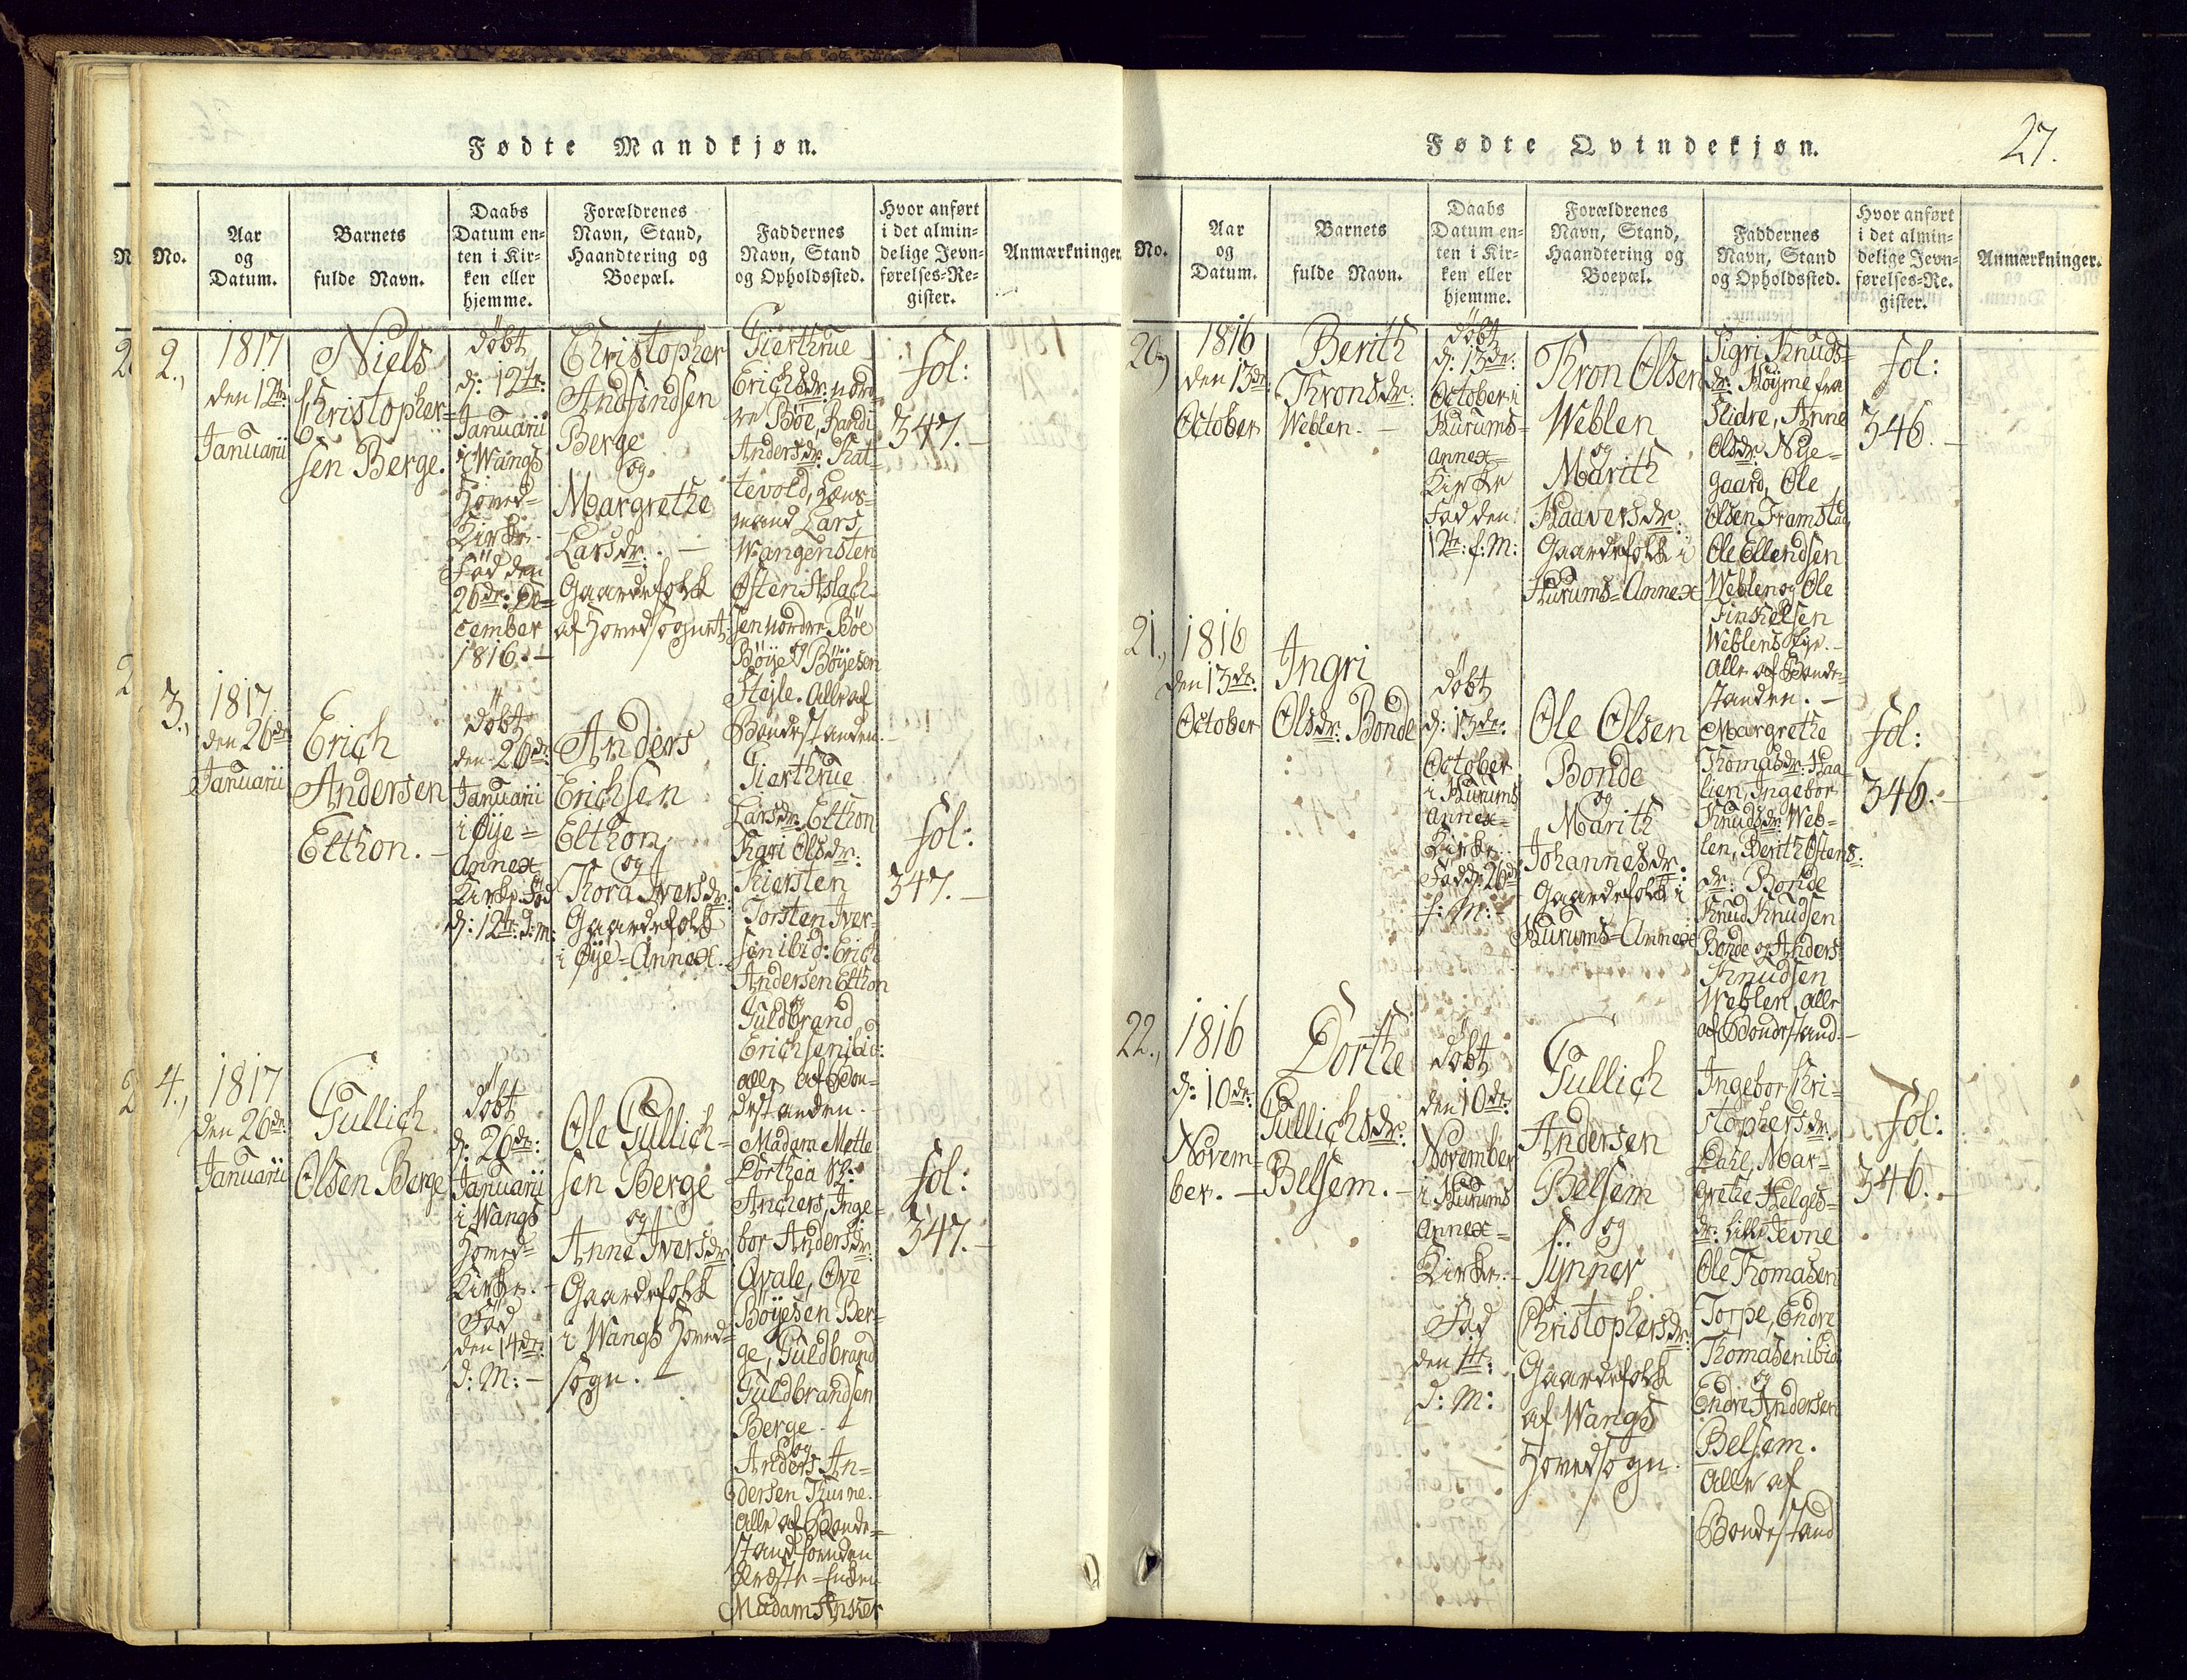 Fødte Mandkjøn.
No.
Aar
og
Datum.
Barnets
fulde Navn.
Daabs
Datum en-
ten i Kir-
ken eller
hjemme.
Forældrenes
Navn, Stand,
Haandtering og
Boepæl.
Faddernes
Navn, Stand
og Opholdssted.
Hvor anført
i det almin-
delige Jevn-
førelses-Re-
gister.
Anmærkninger.
2.,
1817
den 12te
Januarii
Niels
Christopher-
sen Berge.
döbt
d: 12te:
Januarii
i Wangs
Hoved-
Kirke.
Föd den
26de: De-
cember
1816. -
Christopher
Andfindsen
Berge
og
Margrethe
Larsdr. -
Gaardefolk
af Hovedsognet
Gierthrue
Erichsdr: nord-
re Böe, Randi
Andersdr. Kat-
tevold, Læns-
mand Lars
Wangensten
Östen Aslach-
sen nordre Böe
og
Böye Böyesen
Stejle. Alle af
Bondestanden.
fol:
347. -
3.,
1817
den 26de
Januarii
Erich
Andersen
Elthon. -
döbt
den 26de
Januarii
i Øye-
Annex
Kirke. Föd
d: 12te: d: M:
Anders
Erichsen
Elthon
og
Thora Iversdr:
Gaardefolk
i Øye-Annex.
Gierthrue
Larsdr: Elthon
Kari Olsdr:
Kiersten
Torsten Iver-
sen ibid: Erich
Andersen Elthon
og
Guldbrand
Erichsen ibid:
alle af Bon-
destanden.
fol:
347. -
4.,
1817
den 26de
Januarii
Gullich
Olsen Berge
döbt
d: 26de:
Januarii
i Wangs
Hoved-
Kirke. -
Föd
den 14de:
d: M: -
Ole Gullich-
sen Berge
og
Anne Iversdr
Gaardefolk
i Wangs Hoved-
sogn. -
Madam Mette
Dorthea
Anchers, Inge-
bor Andersdr:
Qvale, Ove
Böyesen Ber-
ge, Guldbrand
Guldbrandsen
Berge. -
og
Anders An-
dersen
Alle af Bonde-
stand foruden
Madam Ancher
fol:
347. -
Fødte Qvindekjøn.
27.
No.
Aar
og
Datum.
Barnets
fulde Navn.
Daabs
Datum en-
ten i Kir-
ken eller
hjemme.
Forældrenes
Navn, Stand,
Haandtering og
Boepæl.
Faddernes
Navn, Stand
og Opholdssted.
Hvor anført
i det almin-
delige Jevn-
førelses-Re-
gister.
Anmærkninger.
20.,
1816
den 13de:
October
Berith
Thronsdr:
Weblen. -
döbt
d: 13de:
October i
Hurums-
Annex-
Kirke
Föd den
12te: f: M:
Thron Olsen
Weblen
og
Marith
Haaversdr:
Gaardefolk i
Hurums-Annex
Sigri Knuds-
dr: Höyme fra
Slidre, Anne
Olsdr: Nye-
gaard, Ole
Olsen Framstad
Ole Ellendsen
Weblen og Ole
Finkelsen
Weblens Eye. -
Alle af Bonde-
standen. -
fol:
346. -
21.,
1816
den 13de:
October
Ingri
Olsdr: Bonde
döbt
d: 13de:
October
i Hurums
Annex-
Kirke.
Föd d: 26de
f: M: -
Ole Olsen
Bonde
og
Marith
Johannesdr:
Gaardefolk i
Hurums-Annex
Margrethe
Thomasdr: Haa-
lien, Ingebor
Knudsdr: Web-
len, Berith Östens-
dr: Bonde
Knud Knudsen
Bonde og Anders
Knudsen
Weblen, alle
af Bondestand. -
fol:
346. -
22.,
1816
d: 10de:
Novem-
ber. -
Dorthe
Gullichsdr:
Belsem. -
döbt
den 10de:
November
i Hurums
Annex-
Kirke. -
Föd
den 1te:
d: M:
Gullich
Andersen
Belsem
og
Synner
Christophersdr:
Gaardefolk
af Wangs
Hovedsogn.
Ingebor Chri-
stophersdr:
Dahl, Mar-
grethe Helges-
dr: lille Jevne
Ole Thomasen
Torpe, Endre
Thomasen ibid
og
Endre Andersen
Belsem.
Alle af
Bondestand
fol:
346. -